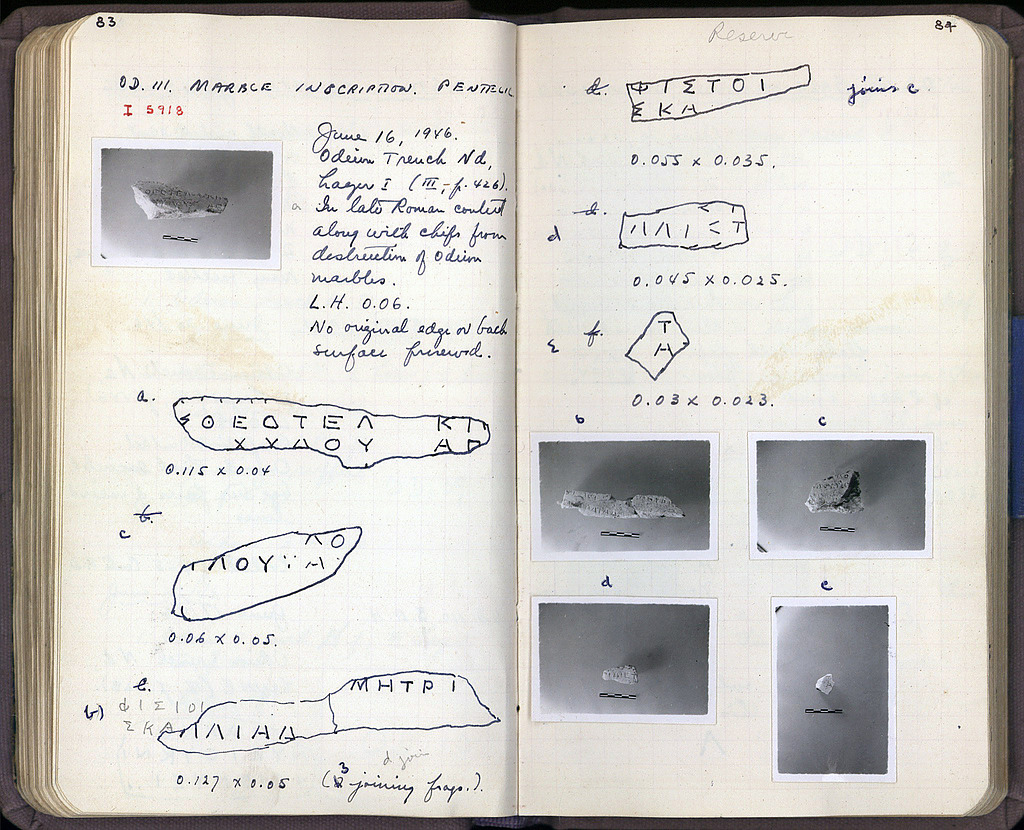 83
OD. III. MARBLE INSCRIPTION. PENTELIC
I 5918
June 16, 1946.
Odeion Trench Nd,
Layer I (III, p. 426).
In late Roman context
along with chips from
destruction of Odeion
marbles.
L.H. 0.06.
No original edge or back
surface preserved.
a.
Σ Θ Ε Ο Τ Ε Λ Κ Τ
Χ Υ Λ Ο Υ Α Ρ
0.115 x 0.04
b.
c
Λ Ο
Τ Λ Ο Υ Ϊ Α
0.06 x 0.05.
e.
b)
Φ Ι Σ Ι Ο Ι
Σ Κ Α
Μ Η Τ Ρ Ι
Λ Λ Ι Α Λ
d join
0.127 x 0.05 (3 joining frags.).
84
Reserve
d.
Φ Ι Σ Τ Ο Ι
Σ Κ Α
joins c
0.055 x 0.035.
d
Λ Λ Ι Σ Τ
0.045 x 0.025.
e
f.
Τ
Α
0.03 x 0.023.
b
c
d
e